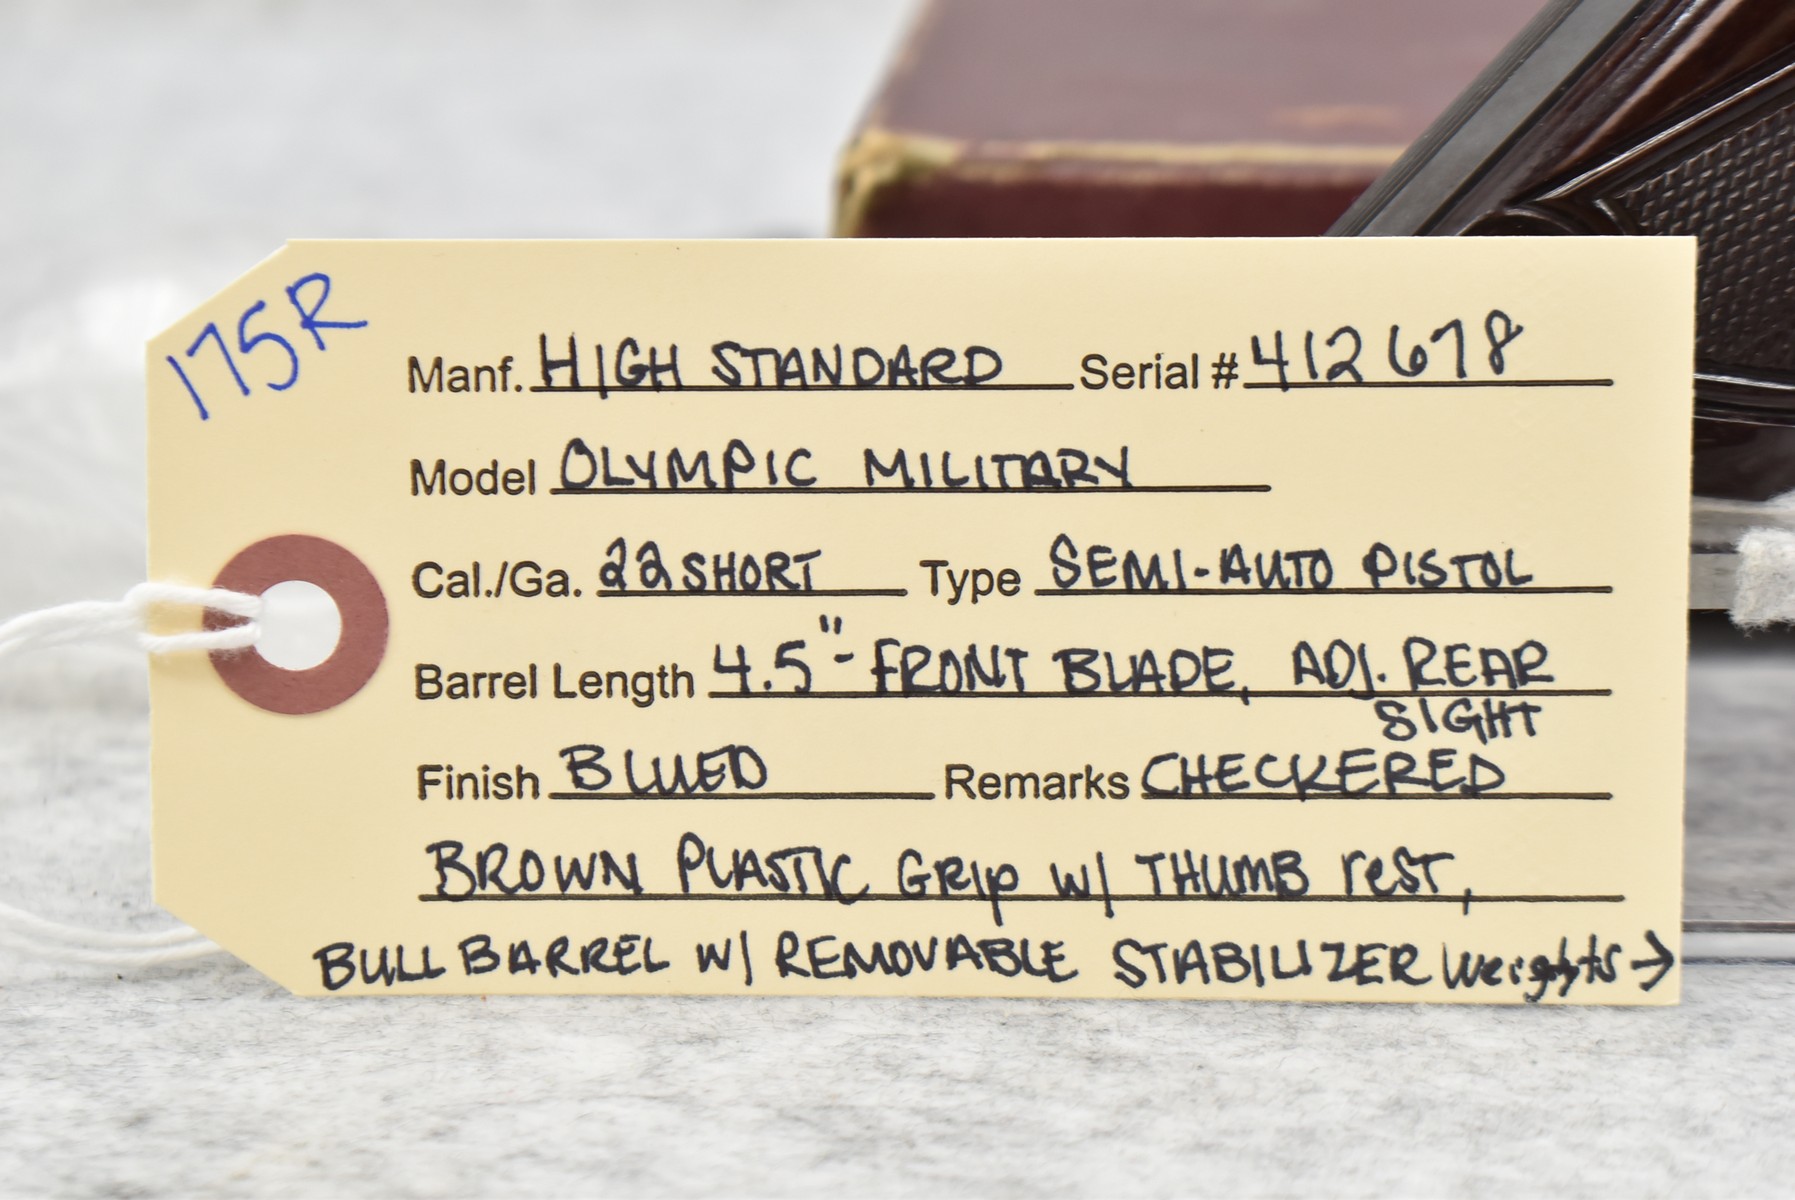 175R
Manf. HIGH STANDARD Serial # 412678
Model OLYMPIC MILITARY
Cal./Ga. 22 SHORT Type SEMI-AUTO PISTOL
Barrel Length 4.5" - FRONT BLADE, ADJ. REAR
SIGHT
Finish BLUED Remarks CHECKERED
BROWN PLASTIC Grip w/ THUMB rest,
BULL BARREL w/ REMOVABLE STABILIZER weights →